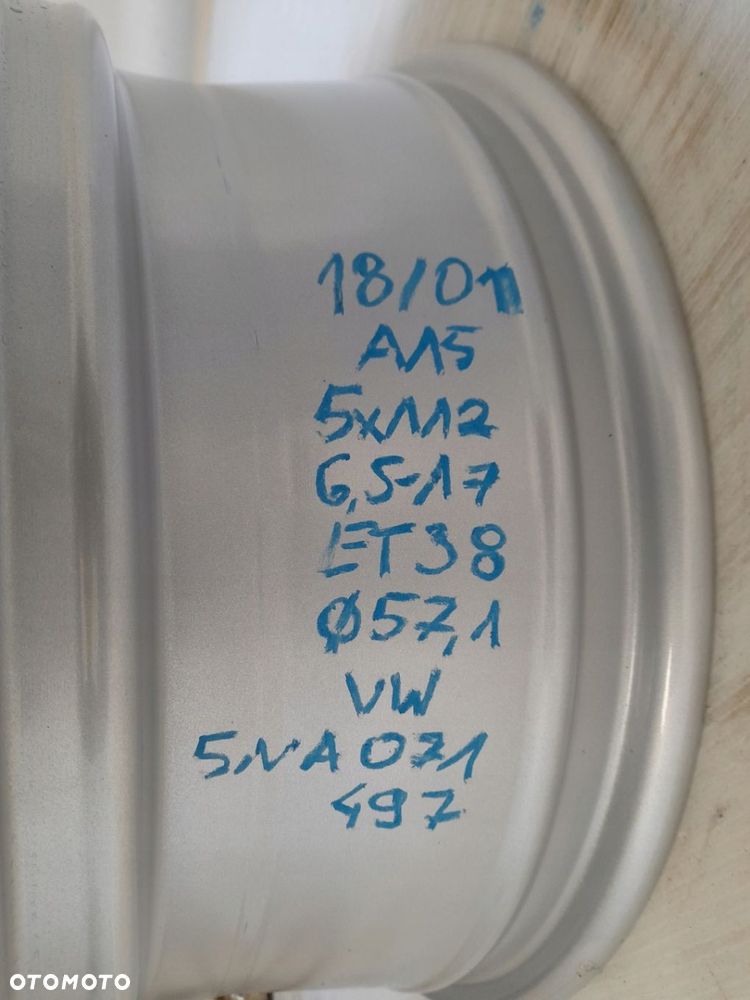 18/01
A15
5x112
6,5-17
ET38
Ø57,1
VW
5NA071
497
OTOMOTO